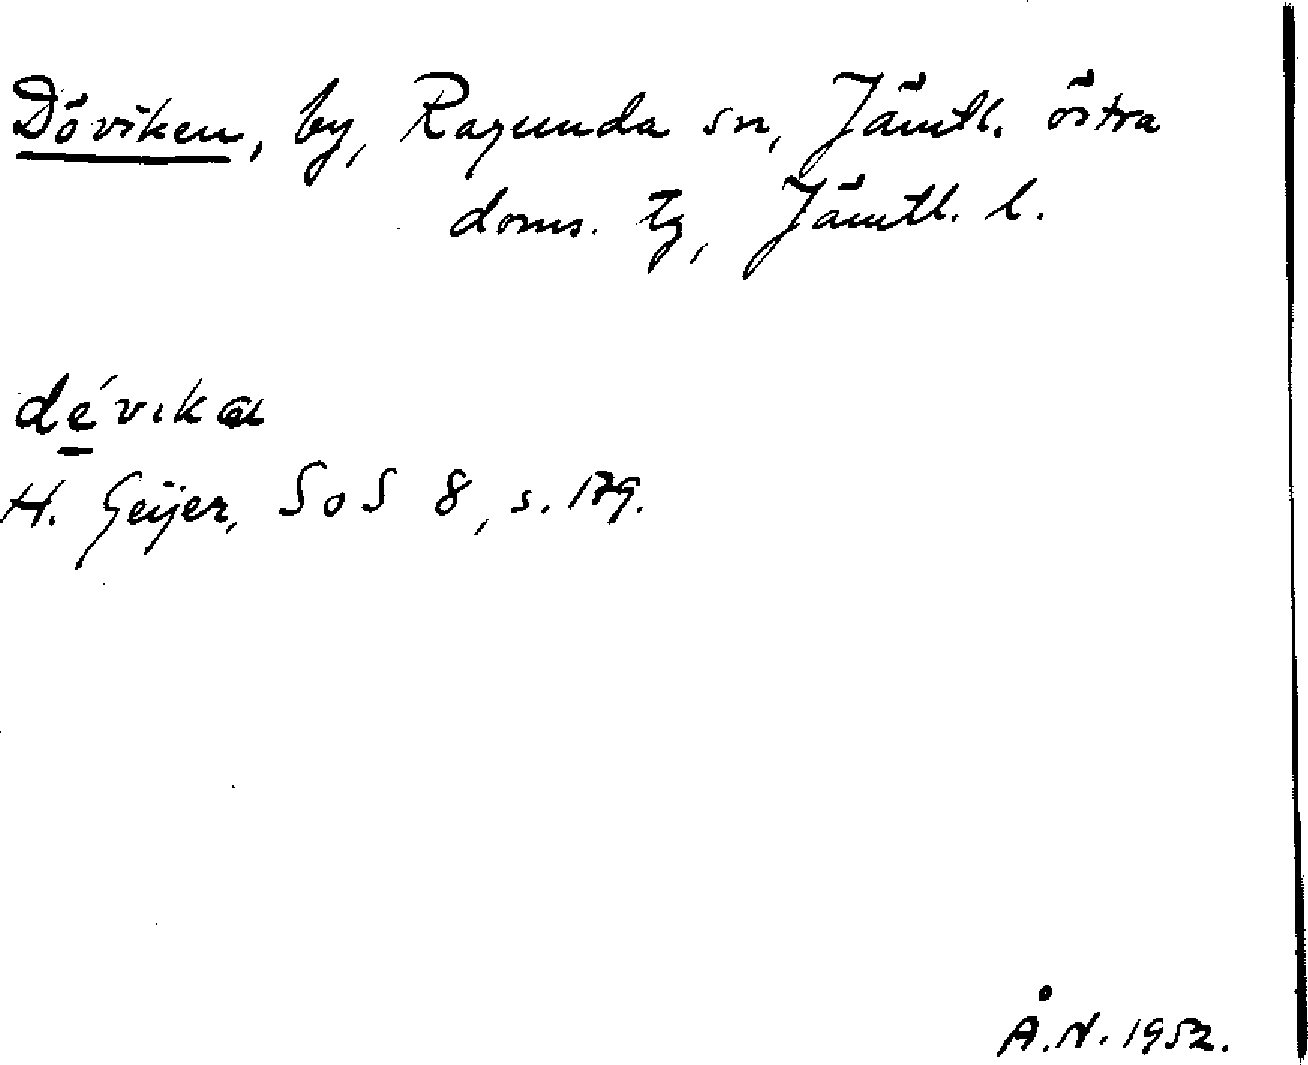 Döviken, by, Ragunda sn, Jämtl. östra
doms. tg, Jämtl. l.
dévika
H. Geijer, SoS 8, s. 179.
Å.N. 1952.